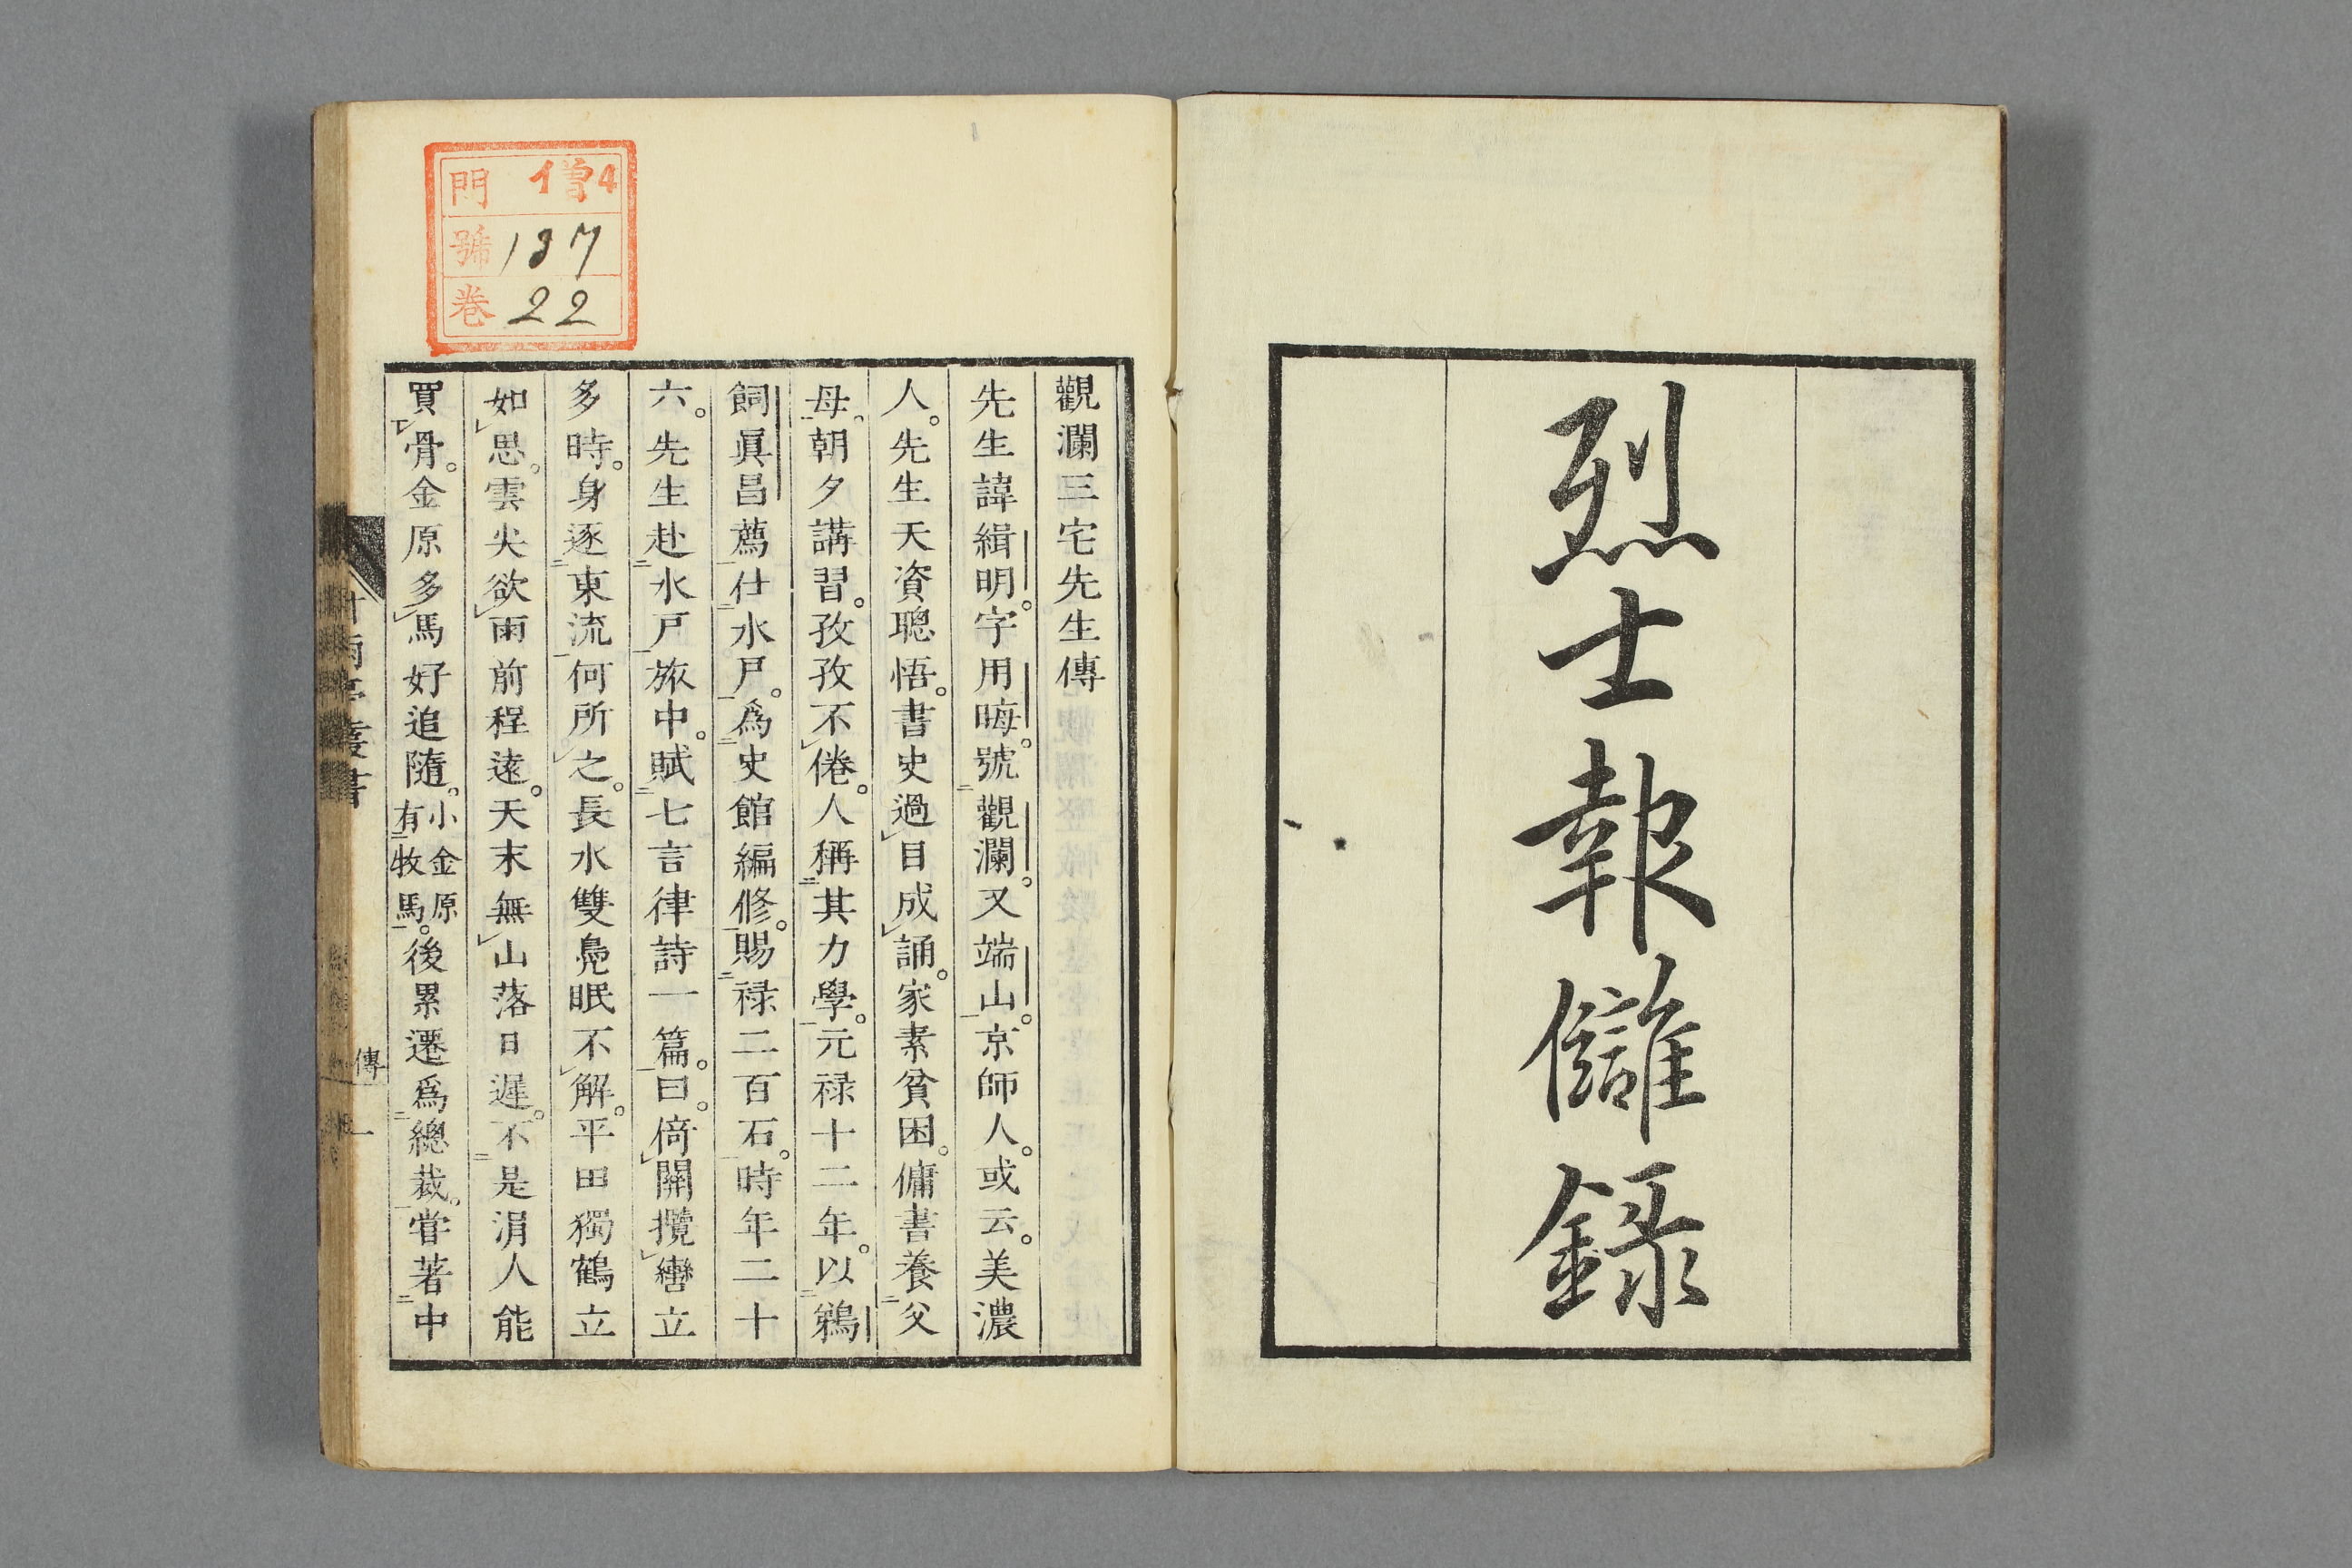 烈士報讎錄
門 僧4
號 137
卷 22
觀瀾三宅先生傳
先生諱緝明。字用晦。號觀瀾。又端山。京師人。或云。美濃
人。先生天資聰悟。書史過目成誦。家素貧困。傭書養父
母。朝夕講習。孜孜不倦。人稱其力學。元禄十二年。以鵜
飼眞昌薦仕水戸。爲史館編修。賜禄二百石。時年二十
六。先生赴水戸旅中。賦七言律詩一篇。曰。倚關攬轡立
多時。身逐東流何所之。長水雙鳧眠不解。平田獨鶴立
如思。雲尖欲雨前程遠。天末無山落日遲。不是涓人能
買骨。金原多馬好追隨。小金原有牧馬。後累遷爲總裁。嘗著中
傳 一